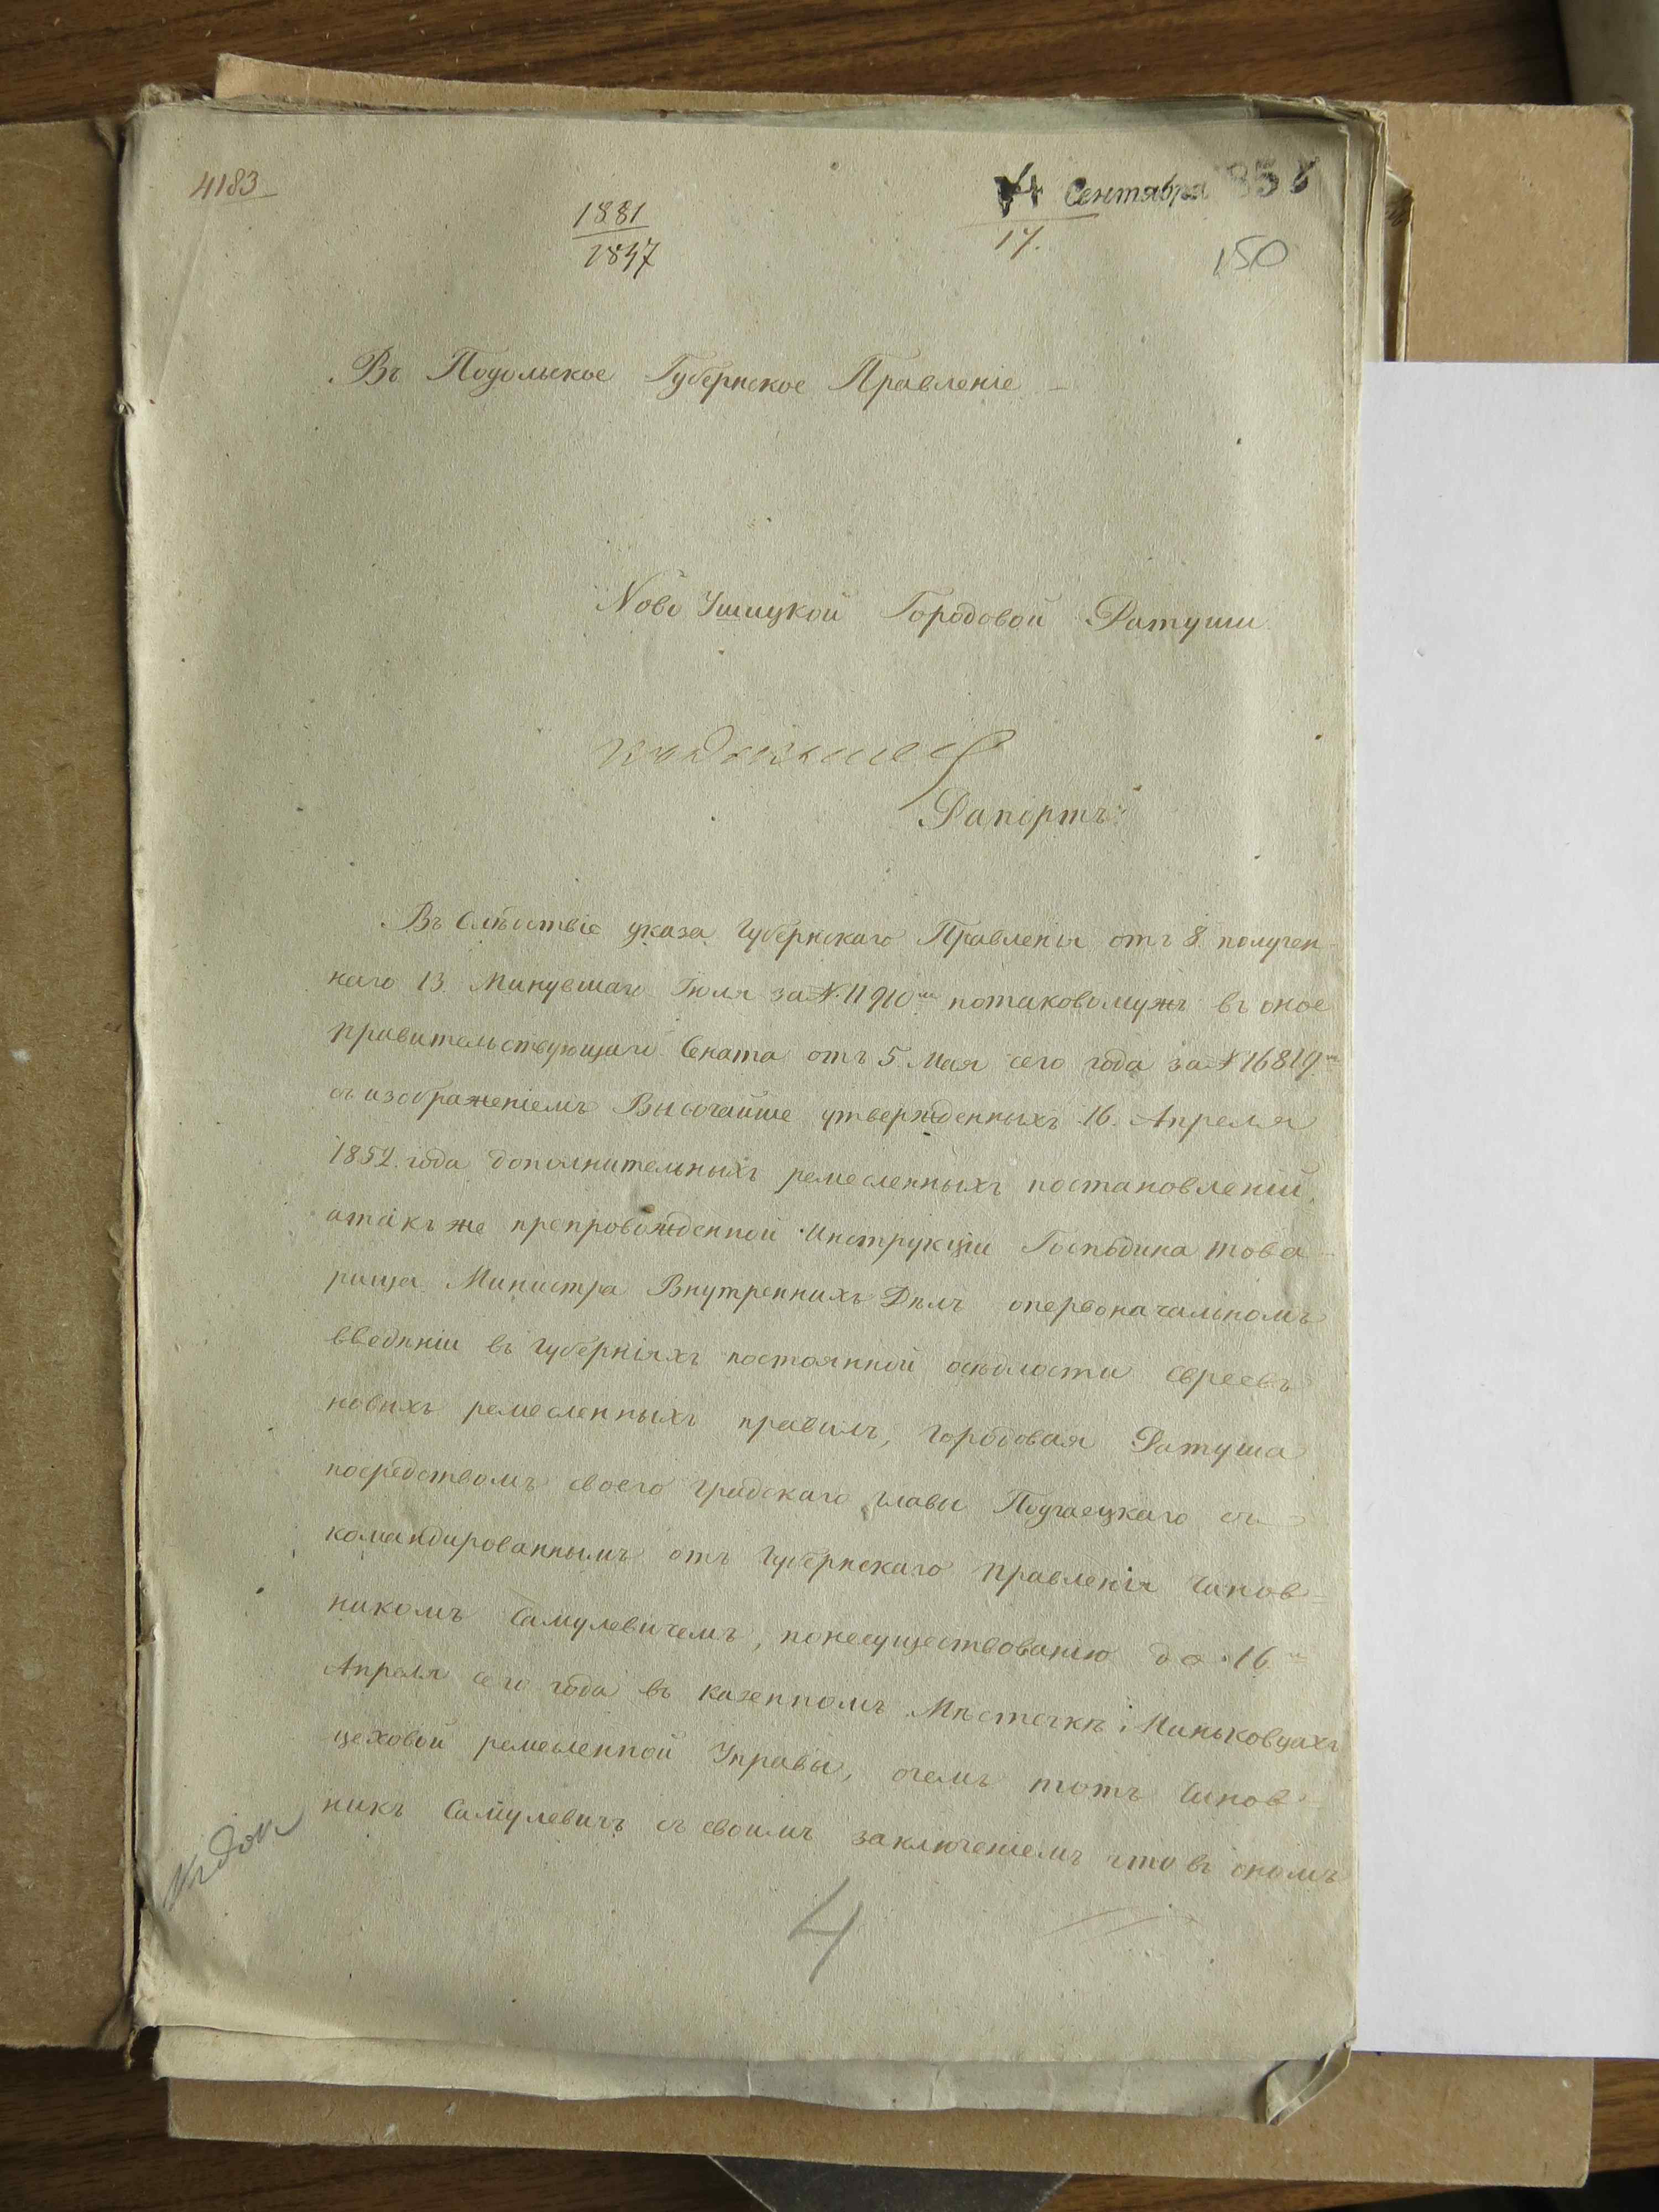 4183
1881
1847
14 Сентября 185
17.
150
Въ Подольское Губернское Правленіе
Ново Ушицкой Городовой Ратуши
Рапортъ.
Въ Слѣдствіе указа Губернскаго Правленія отъ 8. получен-
наго 13. Минувшаго Іюля за № 11910мъ потаковомужъ въ оное
Правительствующаго Сената отъ 5. Мая сего года за № 16819мъ
съ изображеніемъ Высочайше утвержденныхъ 16. Апреля
1852. года дополнительныхъ ремесленныхъ постановленій,
атакъ же препровожденной Инструкціи Господина това-
рища Министра Внутреннихъ Дѣлъ опервоначальномъ
введѣніи въ Губерніяхъ постоянной осѣдлости Евреевъ
новихъ ремесленныхъ правилъ, Городовая Ратуша
посредствомъ своего градскаго главы Подгаецкаго съ
командированнымъ отъ Губернскаго Правленія Чинов-
никомъ Самулевичемъ, понесуществованію до 16го
Апреля сего года въ казенномъ Мѣстечкѣ Миньковцахъ
цеховой ремесленной Управы, очемъ тотъ Чинов-
никъ Самулевичъ съ своимъ заключеніемъ что въ ономъ
4